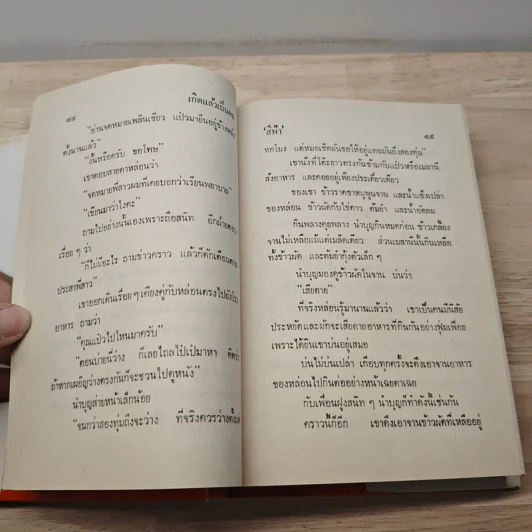 ๔๔
เกิดแล้วเป็นคน
"อ่านจดหมายเพลินเชียว แป้วมายืนอยู่ข้างหลัง
ตั้งนานแล้ว"
"งั้นหรือครับ ขอโทษ"
เขาตอบสายตาหล่อนว่า
"จดหมายพี่สาวผมที่เคยบอกว่าเรียนพยาบาล"
"เขียนมาว่าไงคะ"
ถามไปอย่างนั้นเองเพราะถือสนิท อีกฝ่ายตอบ
เรื่อย ๆ ว่า
"ก็ไม่มีอะไร ถามข่าวคราว แล้วก็ตักเตือนตาม
ประสาพี่สาว"
เขาออกเดินเรื่อยๆ เคียงคู่กับหล่อนตรงไปยังโรง
อาหาร ถามว่า
"คุณแป้วไปไหนมาครับ"
"ตอนบ่ายนี้ว่าง ก็เลยไถลไปเปิมาหา คิดว่า
ถ้าหากเผอิญว่างตรงกันก็จะชวนไปดูหนัง"
นำบุญส่ายหน้าเล็กน้อย
จนกว่าสองทุ่มถึงจะว่าง ที่จริงควรว่างตั้งแต่
'สีฟ้า'
๔๕
หกโมง แต่หมอเชิดมันขอให้อยู่แทนมันถึงสองทุ่ม"
เขานั่งที่โต๊ะยาวตรงกันข้ามกับแป้วหรือเมลานี
สั่งอาหาร และคอยอยู่เพียงประเดี๋ยวเดียว
ของเขา ข้าวราดขาหมูพูนจาน และน้ำแข็งเปล่า
ของหล่อน ข้าวผัดกับไข่ดาว ต้มยำ และน้ำอัดลม
กินพลางคุยพลาง นำบุญกินหมดก่อน ข้าวเกลี้ยง
จานไม่เหลือแม้แต่เม็ดเดียว ส่วนเมลานีนั้นกินเหลือ
ทั้งข้าวผัด และต้มยำกุ้งตัวเล็ก ๆ
นำบุญมองดูข้าวผัดในจาน บ่นว่า
"เสียดาย"
ที่จริงหล่อนรู้มานานแล้วว่า เขาเป็นคนมีนิสัย
ประหยัดและมักจะเสียดายอาหารที่กินกันอย่างฟุ่มเฟือย
เพราะได้ยินเขาบ่นอยู่เสมอ
บ่นไม่บ่นเปล่า เกือบทุกครั้งจะดึงเอาจานอาหาร
ของหล่อนไปกินต่ออย่างหน้าเฉยตาเฉย
กับเพื่อนฝูงสนิท ๆ นำบุญก็ทำดังนี้เช่นกัน
คราวนี้ก็อีก เขาดึงเอาจานข้าวผัดที่เหลืออยู่